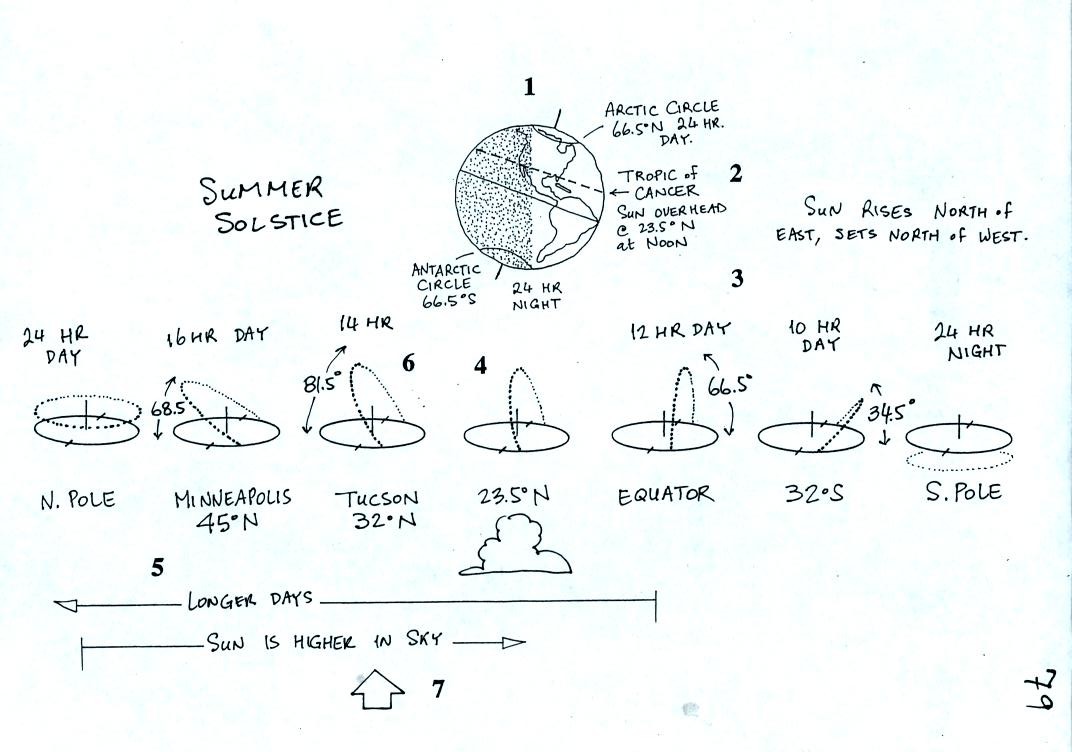 1
ARCTIC CIRCLE
66.5°N 24 HR.
DAY.
2
TROPIC of
CANCER
SUN OVERHEAD
@ 23.5°N
at NOON
SUMMER
SOLSTICE
SUN RISES NORTH of
EAST, SETS NORTH of WEST.
ANTARCTIC
CIRCLE
66.5°S
24 HR
NIGHT
3
24 HR
DAY
16 HR DAY
14 HR
12 HR DAY
10 HR
DAY
24 HR
NIGHT
68.5
81.5°
6
4
66.5°
34.5°
N. POLE
MINNEAPOLIS
45°N
TUCSON
32°N
23.5°N
EQUATOR
32°S
S. POLE
5
LONGER DAYS
SUN IS HIGHER IN SKY
7
79